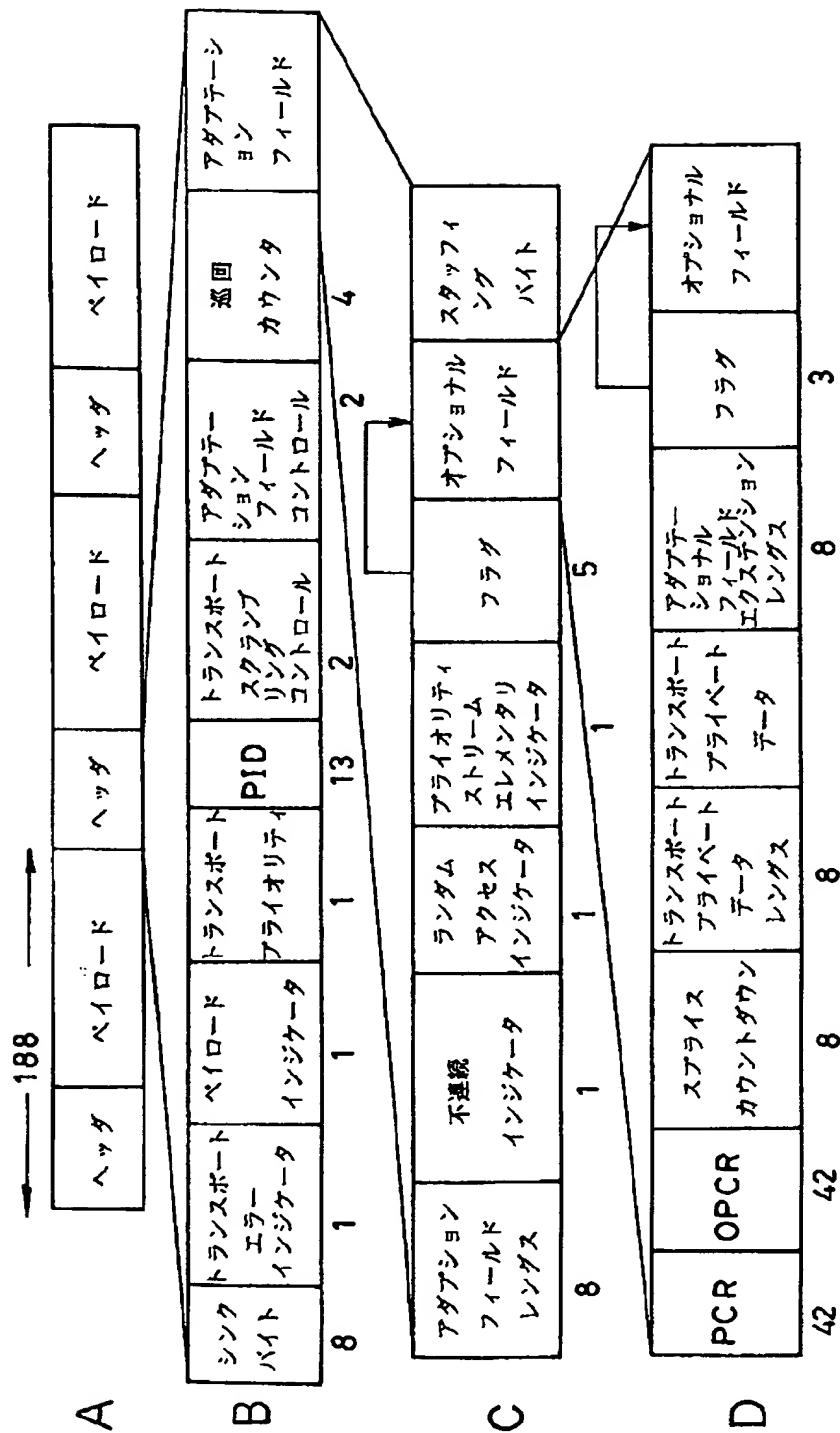 188
A
ヘッダ
ペイロード
ヘッダ
ペイロード
ヘッダ
ペイロード
B
シンク
バイト
トランスポート
エラー
インジケータ
ペイロード
インジケータ
トランスポート
プライオリティ
PID
トランスポート
スクランブ
リング
コントロール
アダプテー
ション
フィールド
コントロール
巡回
カウンタ
アダプテーシ
ョン
フィールド
8
1
1
1
13
2
2
4
C
アダプション
フィールド
レングス
不連続
インジケータ
ランダム
アクセス
インジケータ
プライオリティ
ストリーム
エレメンタリ
インジケータ
フラグ
オプショナル
フィールド
スタッフィ
ング
バイト
8
1
1
1
5
D
PCR
OPCR
スプライス
カウントダウン
トランスポート
プライベート
データ
レングス
トランスポート
プライベート
データ
アダプテー
ショナル
フィールド
エクステンション
レングス
フラグ
オプショナル
フィールド
42
42
8
8
8
3